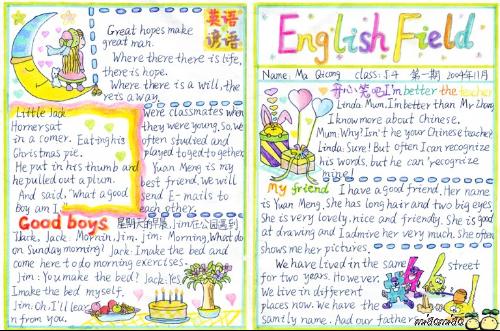 Great hopes make
great man.
Where there there is life,
there is hope.
Where there is a will, the
re is a way
英语
谚语
Little Jack
Horner sat
in a corner. Eating his
Christmas pie.
He put in his thumb and
he pulled out a plum.
And said, "What a good
boy am I
Were classmates when
they were young, So, we
often studied and
played together.
Yuan Meng is my
best friend, We will
send E-mails to
each other.
Good boys
星期天的早晨, Jim在公园遇到
Jack, Jack: Mornin, Jim. Jim: Morning, What do
on Sunday morning? Jack: I make the bed and
come here to do morning exercises.
Jim: You make the bed? Jack: Yes,
I make the bed myself,
Jim: Oh, I'll lear
n from you.
English Field
Name: Ma Qicong class: 5.4 第一期 2009年11月
开心笑吧 I'm better the teacher
Linda: Mum. I'm better than Mr Zhang
I know more about Chinese.
Mum: Why? Isn't he your Chinese teacher
Linda: Sure! But often I can recognize
his words, but he can 'recognize
mine!
My friend I have a good friend. Her name
is Yuan Meng, She has long hair and two big eyes
She is very lovely, nice and friendly. She is good
at drawing and I admire her very much. She often
shows me her pictures.
We have lived in the same street
for two years. However,
We live in different
places now. We have the
samily name. And our father
miaomiao